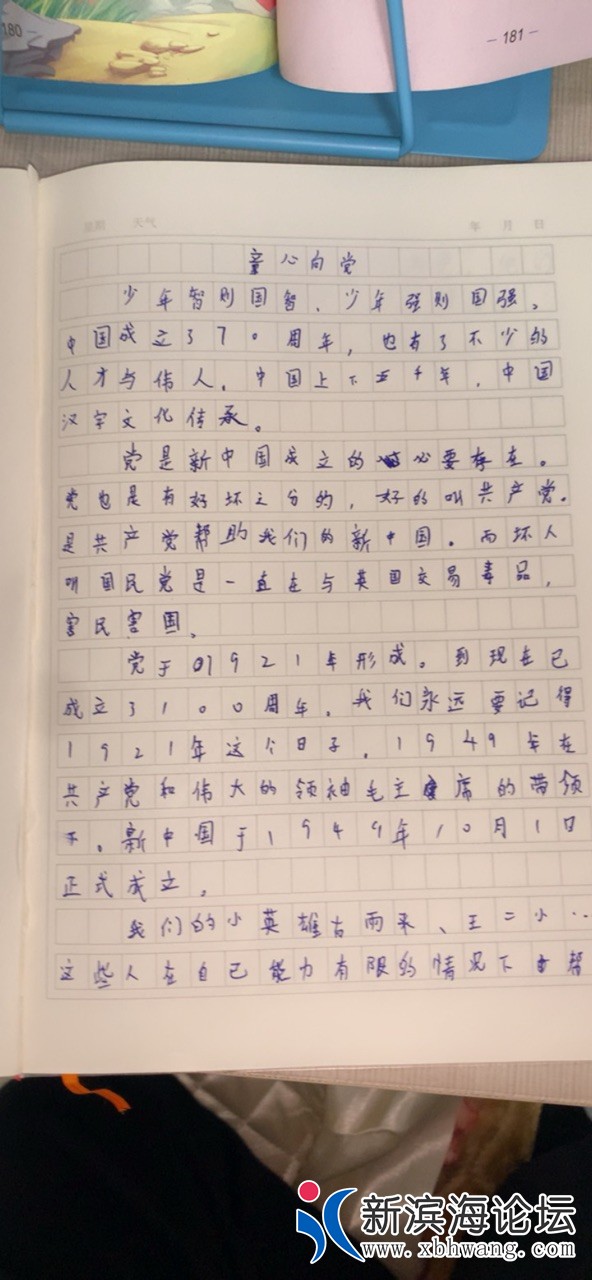 180
-181-
星期 天气 年 月 日
童心向党
少年智则国智、少年强则国强。
中国成立了70周年，也有了不少的
人才与伟人。中国上下五千年，中国
汉字文化传承。
党是新中国成立的必要存在。
党也是有好坏之分的，好的叫共产党.
是共产党帮助我们的新中国。而坏人
叫国民党是一直在与英国交易毒品，
害民害国、
党于1921年形成。到现在已
成立了100周年，我们永远要记得
1921年这个日子，1949年在
共产党和伟大的领袖毛主席的带领
下。新中国于1949年10月1日
正式成立，
我们的小英雄古雨来、王二小··
这些人在自己能力有限的情况下帮
新滨海论坛
www.xbhwang.com